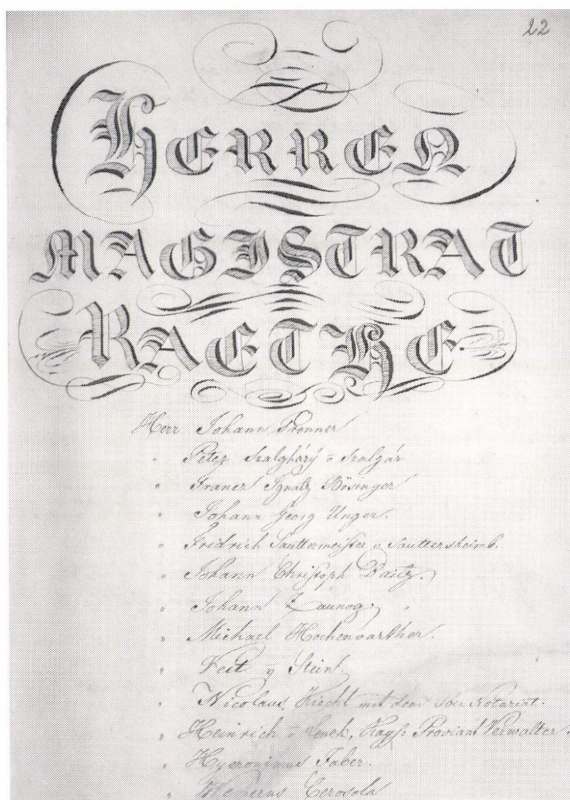 22
HERREN
MAGISTRAT
RAETHE.
Herr Johann Prenner
" Peter Szalgháry v Szalgár
" Franz Ignatz Bösinger
" Johann Georg Unger.
" Fridrich Sauttermeister v. Sauttersheimb.
" Johann Christoph
" Johann Zaunog.
" Michael Hochenwarther.
" Veit v Stein
" Nicolaus Hiecht mit dem Notariat.
" Heinrich v Kays: Proviant Verwalter.
" Hyeronimus Faber.
" Cerosola